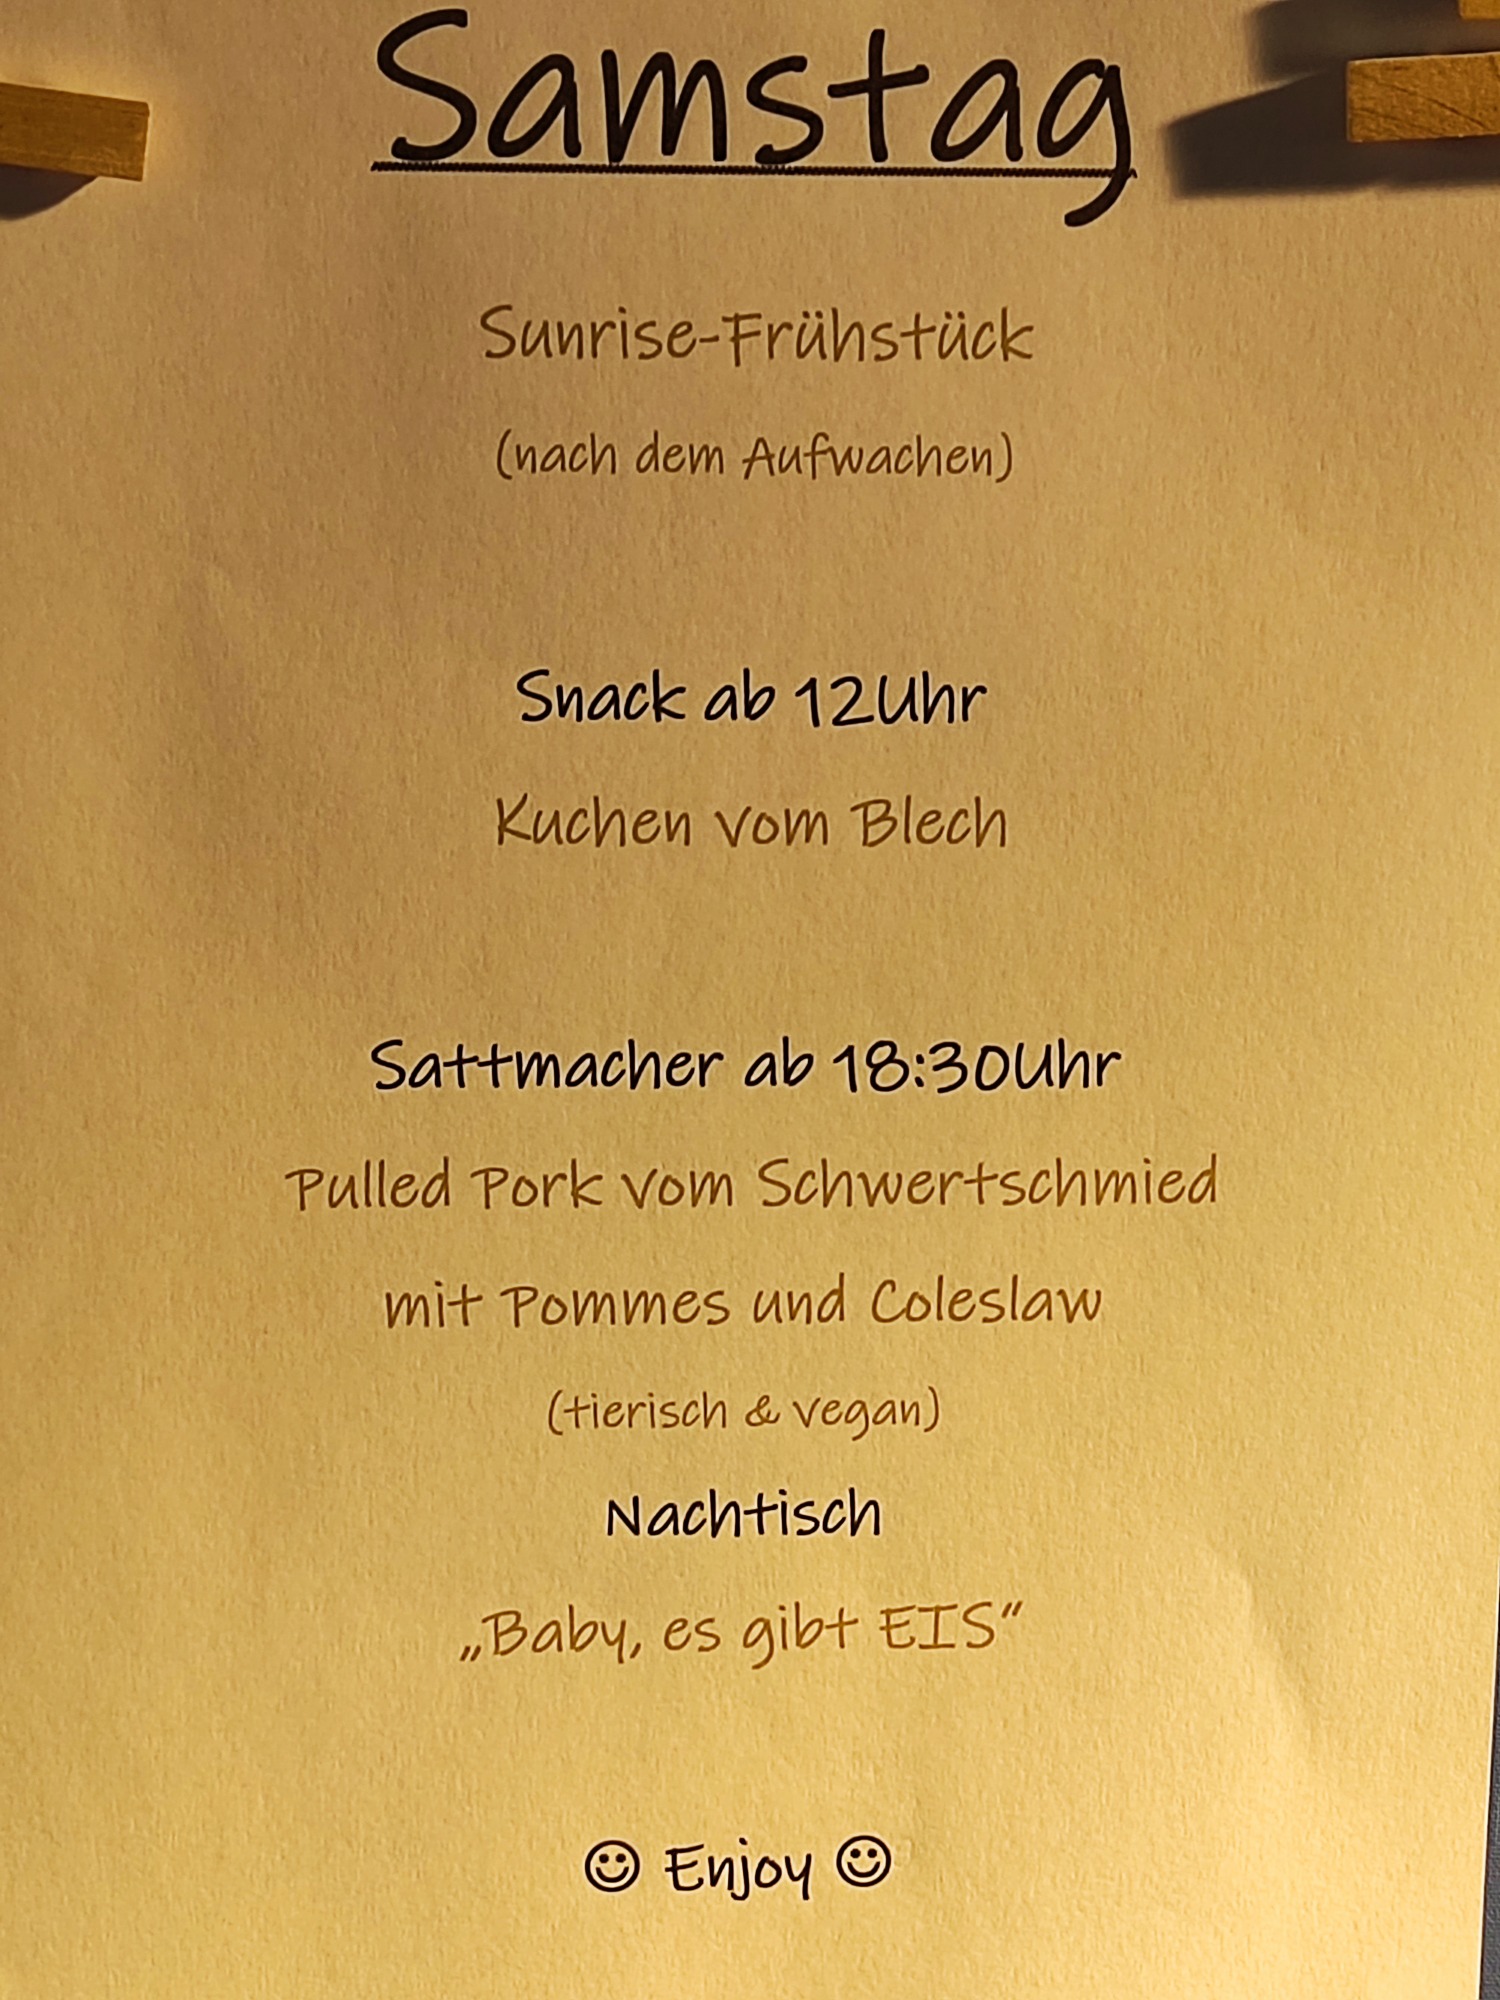 Samstag
Sunrise-Frühstück
(nach dem Aufwachen)
Snack ab 12Uhr
Kuchen vom Blech
Sattmacher ab 18:30Uhr
Pulled Pork vom Schwertschmied
mit Pommes und Coleslaw
(tierisch & vegan)
Nachtisch
„Baby, es gibt EIS“
☺ Enjoy ☺